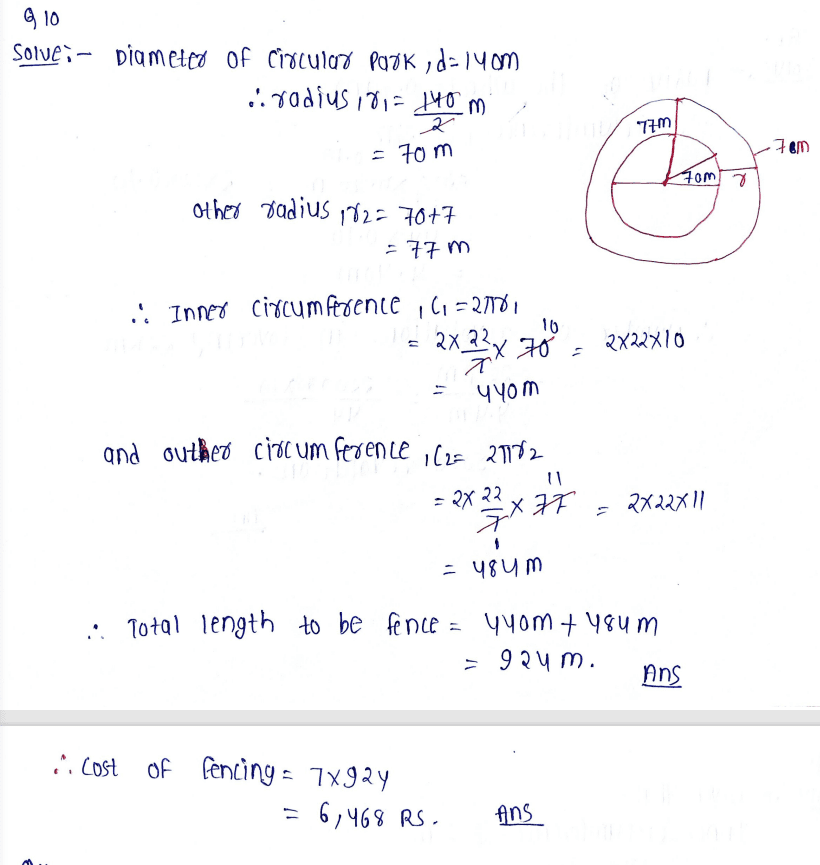 Q 10
Solve:- Diameter of circular park, d=140m
∴ radius, r1 = 140/2 m
= 70 m
other radius, r2 = 70+7
= 77 m
77m
70m
r
7m
∴ Inner circumference, C1 = 2πr1
= 2× 22/7 × 70 10 = 2×22×10
= 440m
and outher circumference, C2 = 2πr2
= 2× 22/7 × 77 11 = 2×22×11
1
= 484m
∴ Total length to be fence = 440m + 484m
= 924 m.
Ans
∴ Cost of fencing = 7×924
= 6,468 RS. Ans